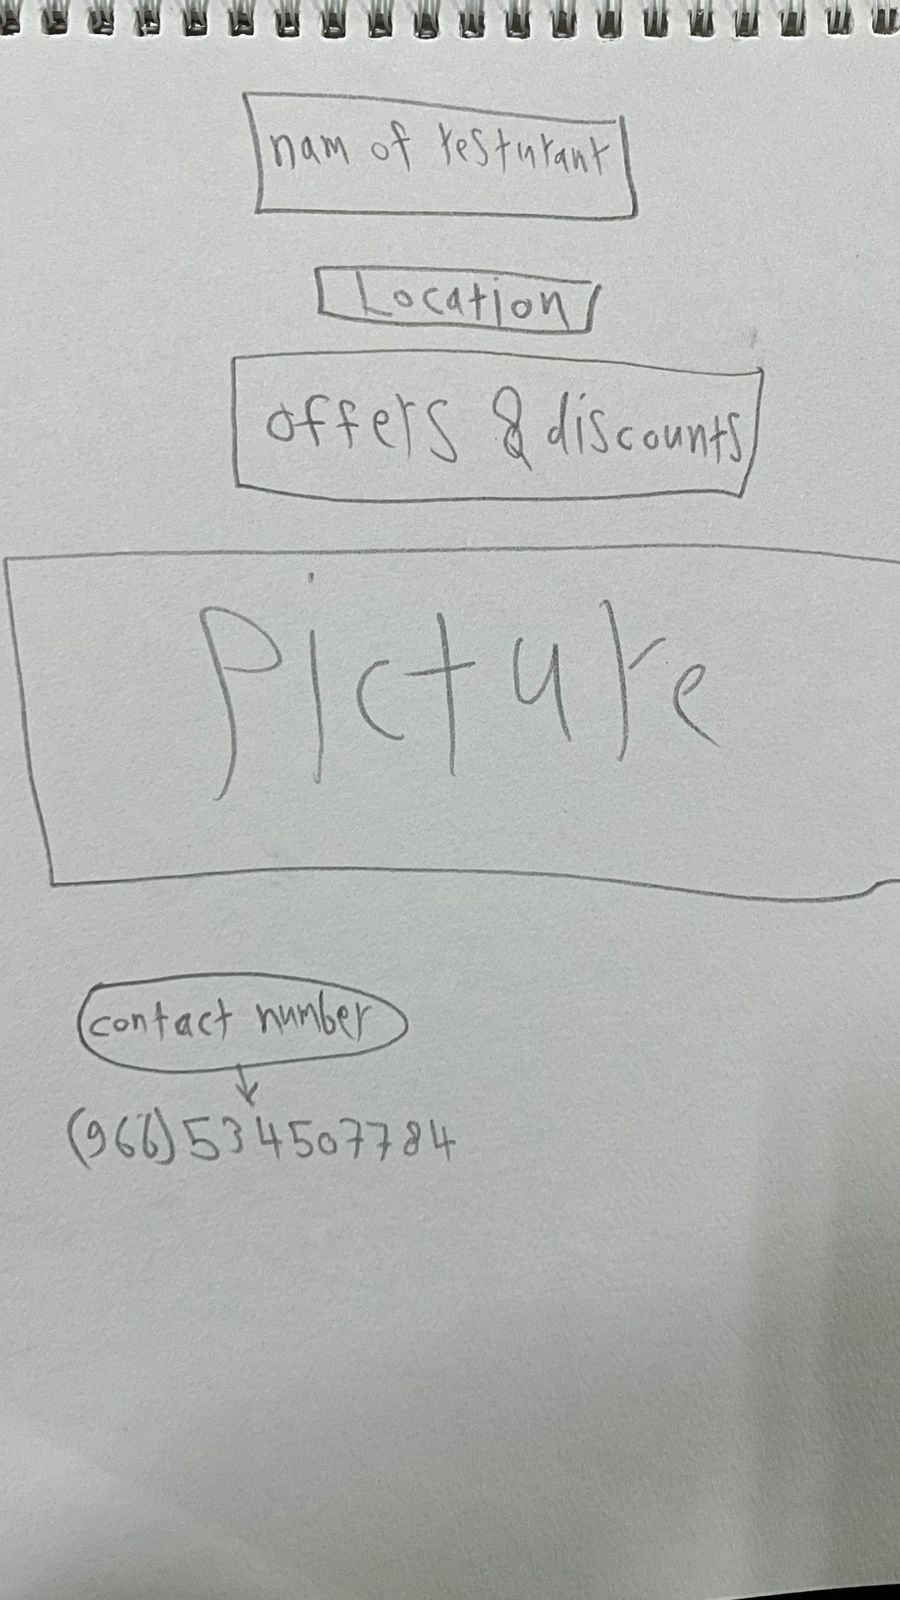 nam of resturant
Location
offers & discounts
Picture
contact number
(966)534507784